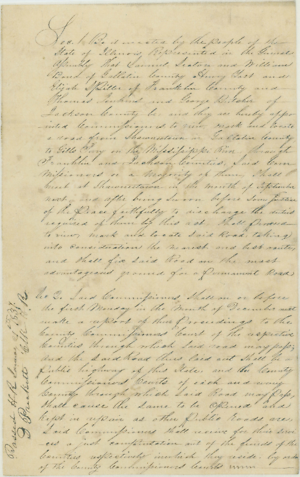 Sec. 1. Be it enacted by the people of the
State of Illinois, Represented in the General
Assembly that Samuel Seaton and William
of Gallatin County Henry
and Elijah Spiller of Franklin County and
Thomas and George
Jackson County be and they are hereby appoin
ted Commissioners to view mark and locate
a road from Shawneetown in Gallatin County
to on the Mississippi River through
Franklin and Jackson Counties, Said Com
missioners or a Majority of them Shall
meet at Shawneetown in the month of September
next, And after being Sworn before Some Justice
of the Peace faithfully to discharge the duties
required of them by this act. Shall proceed
to view mark and locate Said Road, taking
into consideration the nearest and best route
and Shall fix Said Road on the most
advantageous ground for a Permanent Road
Sec 2. Said Commissioners Shall on or before
the first Monday in the Month of December next
make a report of their proceedings to the
County Commissioners Court of the respective
Counties through which Said road may pass,
And the Said Road thus laid out Shall be a
Public highway of this State. And the County
Commissioners Courts of each and every
County through which Said Road may Pass,
Shall cause the Same to be opened and
kept in repair as other Public Roads are.
Said Commissioners Shall receive for their Servi
ces a just compensation out of the funds of the
Counties respectively in which they reside by order
of the County Commissioners Courts
Passed
D Prickett Clk H R